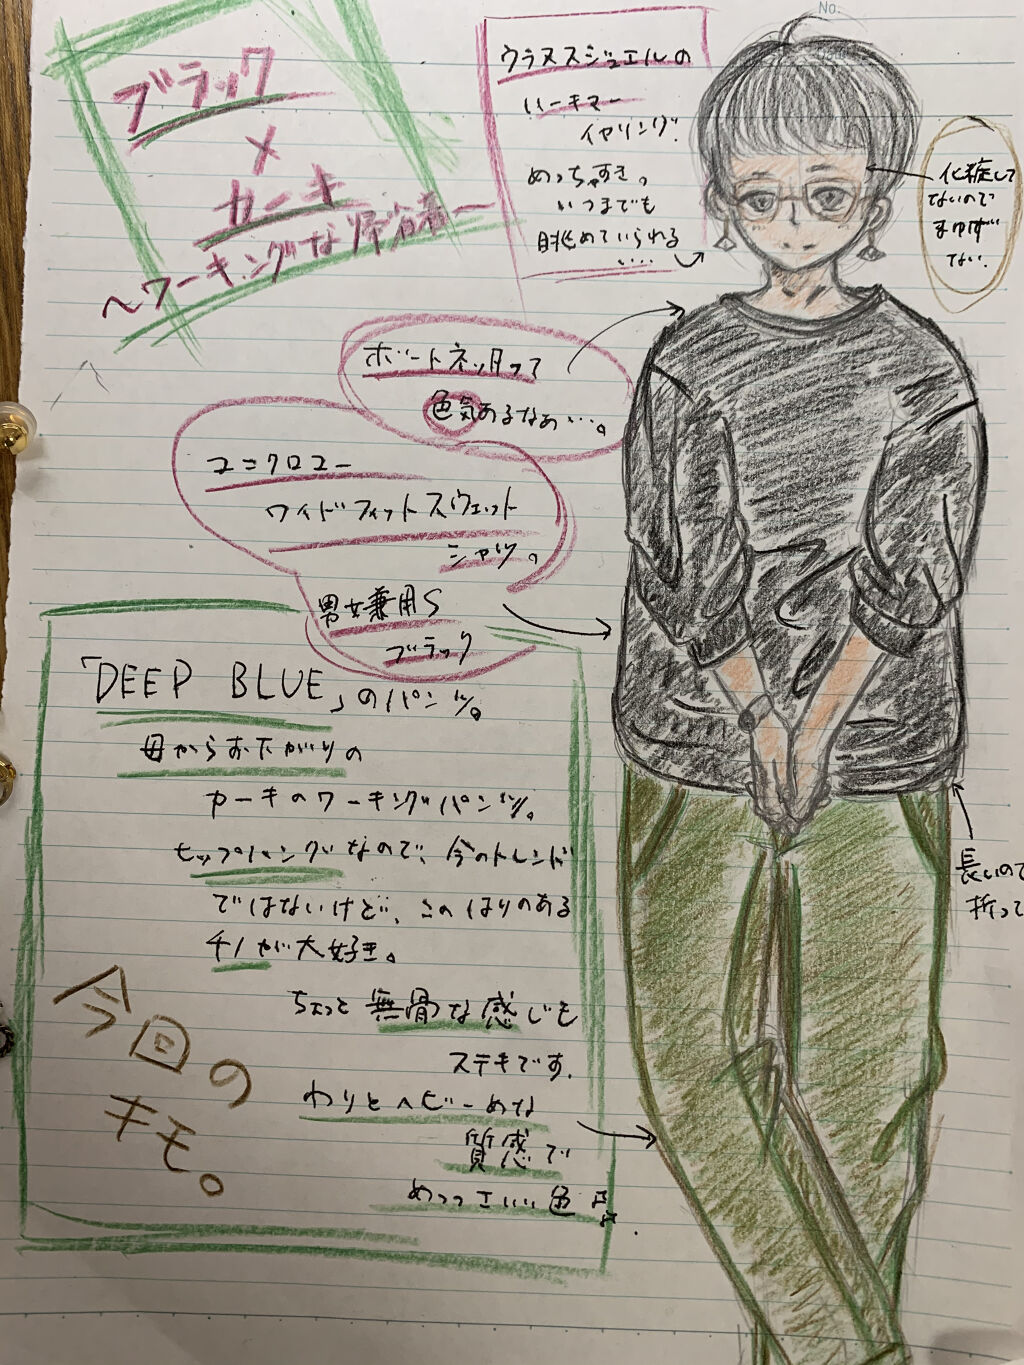 ブラック
×
カーキ
〜ワーキングな帰省着〜
ウラヌスジュエルの
ハーキマー
イヤリング。
めっちゃすき。
いつまでも
眺めていられる
....
No.
化粧して
ないので
まゆげ
ない.
ボートネックって
色気あるなぁ…。
ユニクロユー
ワイドフィットスウェット
シャツ。
男女兼用S
ブラック
「DEEP BLUE」のパンツ。
母からお下がりの
カーキのワーキングパンツ。
ヒップハングなので、今のトレンド
ではないけど、このはりのある
チノが大好き。
ちょっと無骨な感じも
ステキです.
わりとヘビーめな
質感で
めっっさいい色
今回の
キモ。
長いので
折って